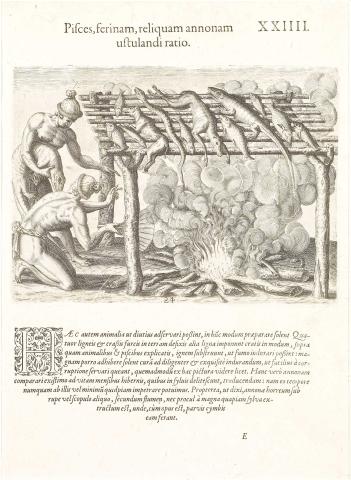 Pisces, ferinam, reliquam annonam XXIIII.
ustulandi ratio.
24
HÆC autem animalia ut diutius adservari possint, in hũc modum præparare solent Qua-
tuor ligneis & crassis furcis in terram defixis alia ligna imponunt cratis in modum, supra
quam animalibus & piscibus explicatis, ignem substruunt, ut fumo indurari possint: ma-
gnam porro adhibere solent curã ad diligenter & exquisitè indurandum, ut facilius à cor-
ruptione servari queant, quemadmodũ ex hac pictura videre licet. Hanc verò annonam
comparari existimo ad vitam mensibus hibernis, quibus in sylvis delitescunt, traducendam: nam eo tempore
numquam ab illis vel minimũ quidpiam impetrare potuimus. Propterea, ut dixi, annonæ horreum sub
rupe vel scopulo aliquo, secundum flumen, nec procul à magna quapiam sylva ex-
tructum est, unde, cùm opus est, parvis cymbis
eam ferant.
E